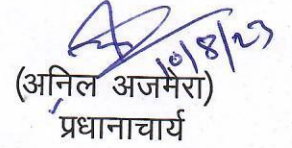 10/8/23
(अनिल अजमेरा)
प्रधानाचार्य